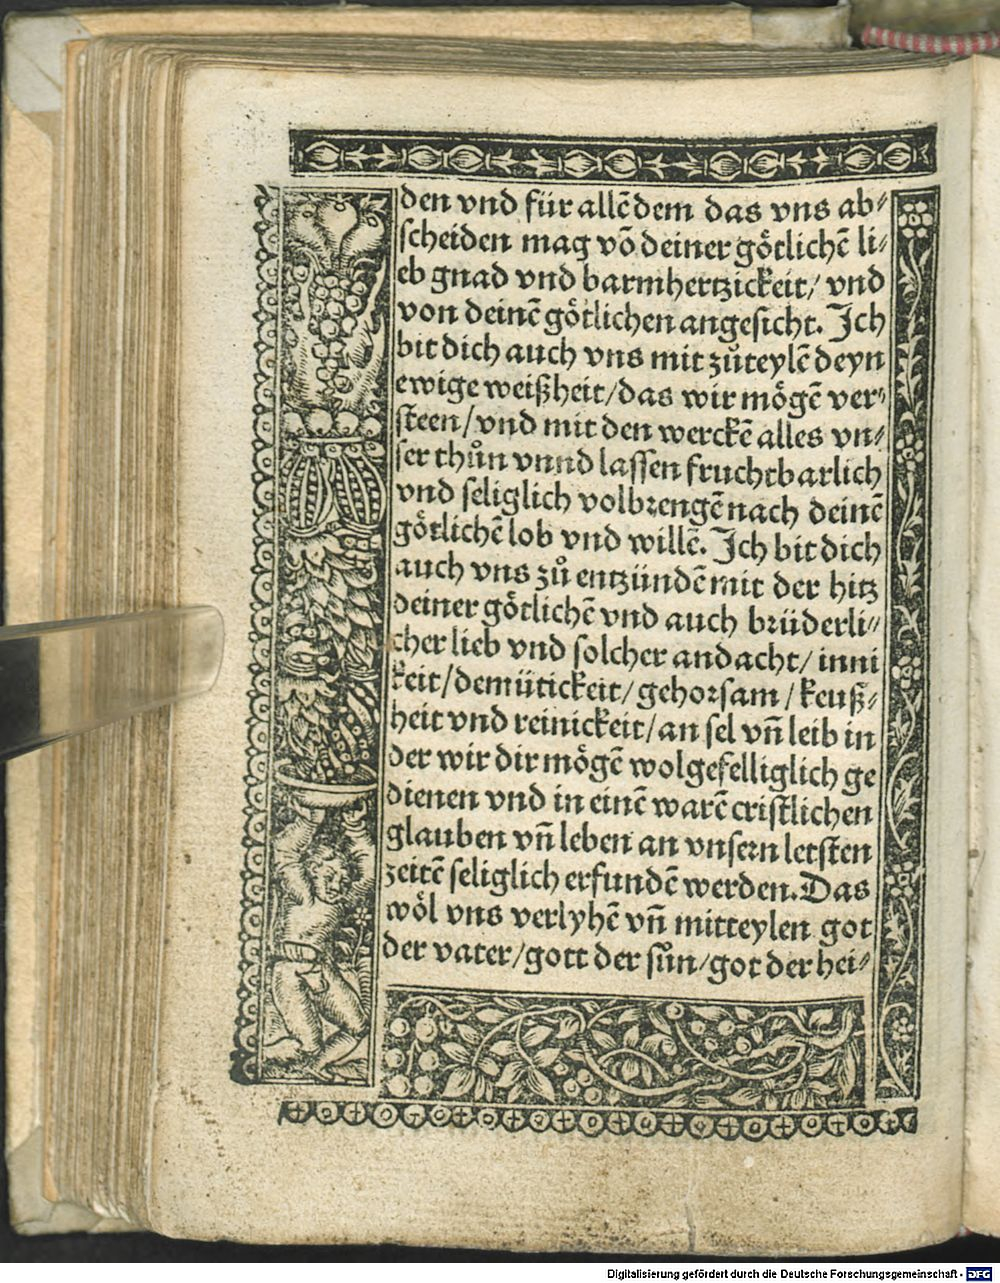 den vnd für allē dem das vns ab⸗
scheiden mag vō deiner götlichē li⸗
eb gnad vnd barmhertzickeit/ vnd
von deinē götlichen angesicht. Ich
bit dich auch vns mit zůteylē deyn
ewige weißheit/das wir mögē ver⸗
steen/vnd mit den werckē alles vn⸗
ser thůn vnnd lassen fruchtbarlich
vnd seliglich volbrengē nach deinē
götlichē lob vnd willē. Ich bit dich
auch vns zů entzündē mit der hitz
deiner götlichē vnd auch brüderli⸗
cher lieb vnd solcher andacht/ inni
keit/demütickeit/gehorsam/keuß⸗
heit vnd reinickeit/an sel vn̄ leib in
der wir dir mögē wolgefelliglich ge
dienen vnd in einē warē cristlichen
glauben vn̄ leben an vnsern letsten
zeitē seliglich erfundē werden. Das
wöl vns verlyhē vn̄ mitteylen got
der vater/gott der sůn/got der hei⸗
Digitalisierung gefördert durch die Deutsche Forschungsgemeinschaft - DFG